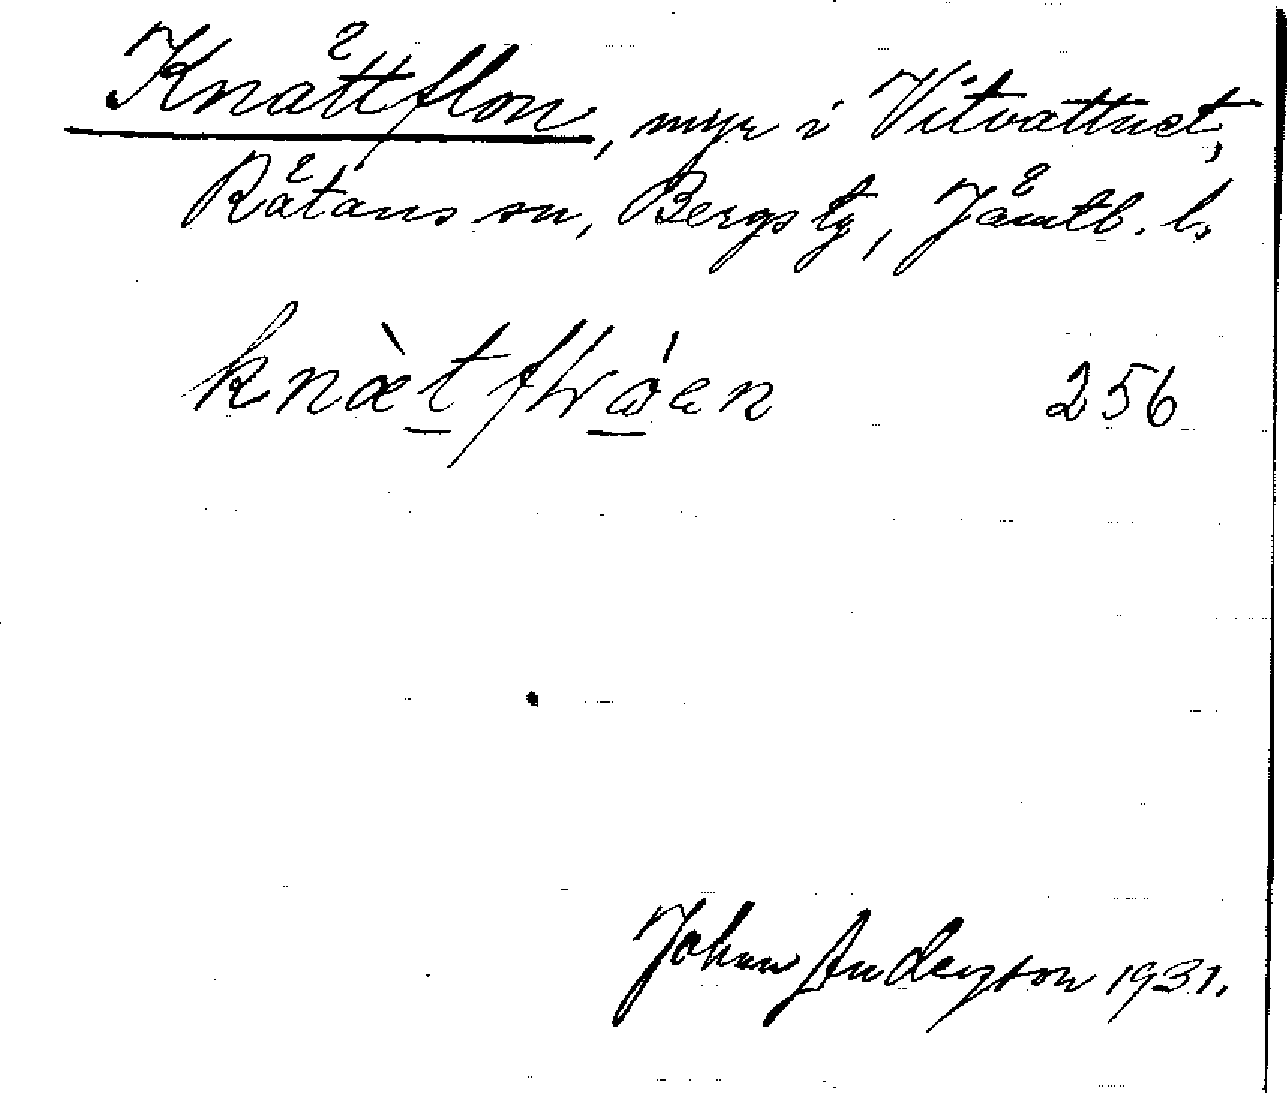 Knättflon, myr i Vitvattnet,
Rätans sn, Bergs tg, Jämtl. l.
256
Johan Anderson 1931.